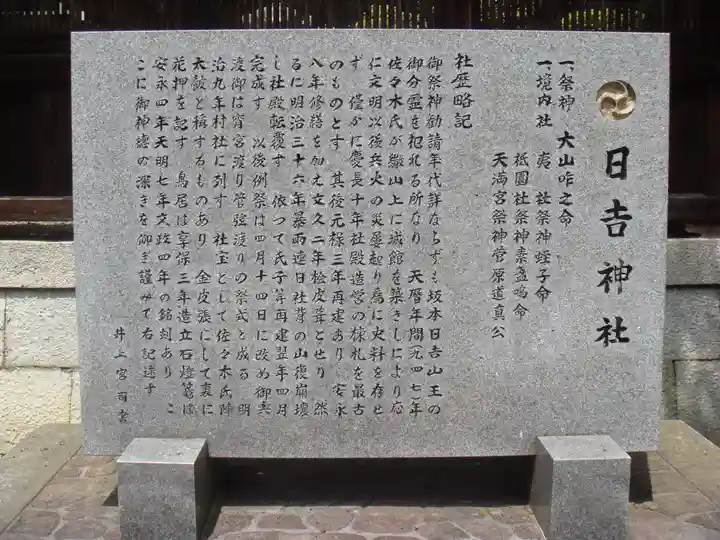 日吉神社
一、祭神 大山咋之命
一、境内社 夷 社祭神蛭子命
祗園社祭神素盞嗚命
天満宮祭神菅原道真公
社歴略記
御祭神勧請年代詳ならずも坂本日吉山王の
御分霊を祀れる所なり 天暦年間九四七年
佐々木氏が繖山上に城館を築きしにより応
仁文明以後兵火の災屡起り為に史料を存せ
ず 僅かに慶長十年社殿造営の棟札を最古
のものとす 其後元禄三年再建あり 安永
八年修繕を加え文久二年桧皮葺とせり 然
るに明治三十六年暴雨連日社背の山復崩壊
し社殿転覆す 依つて氏子等再建翌年四月
完成す 以後例祭は四月十四日に改め御輿
渡御は宵宮渡り管弦渡りの祭式と成る 明
治九年村社に列す 社宝として佐々木氏陣
太鼓と称するものあり 金皮張にして裏に
花押を記す 鳥居は享保三年造立石燈篭は
安永四年天明七年文政四年の銘刻あり こ
こに御神徳の深きを仰ぎ謹みて右記述す
井上宮司書